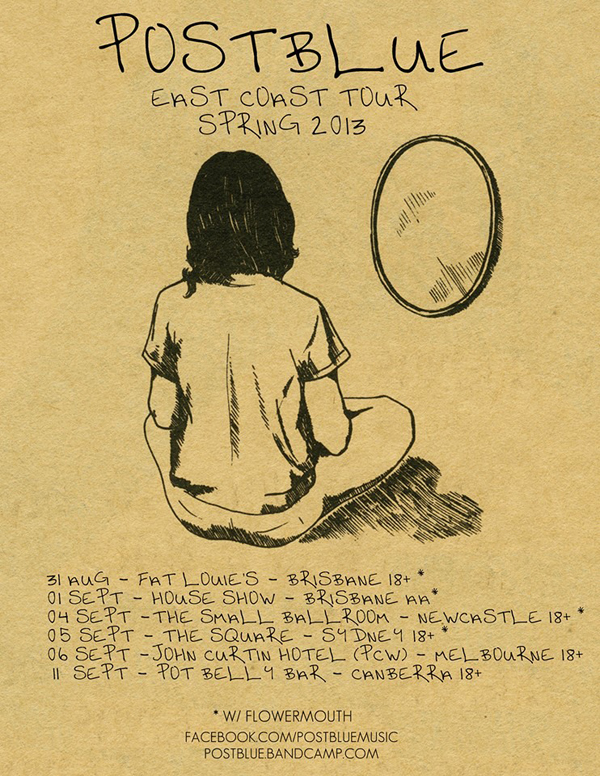 POSTBLUE
EAST COAST TOUR
SPRING 2013
31 AUG - FAT LOUIE'S - BRISBANE 18+ *
01 SEPT - HOUSE SHOW - BRISBANE AA *
04 SEPT - THE SMALL BALLROOM - NEWCASTLE 18+ *
05 SEPT - THE SQUARE - SYDNEY 18+ *
06 SEPT - JOHN CURTIN HOTEL (PCW) - MELBOURNE 18+
11 SEPT - POT BELLY BAR - CANBERRA 18+
* W/ FLOWERMOUTH
FACEBOOK.COM/POSTBLUEMUSIC
POSTBLUE.BANDCAMP.COM